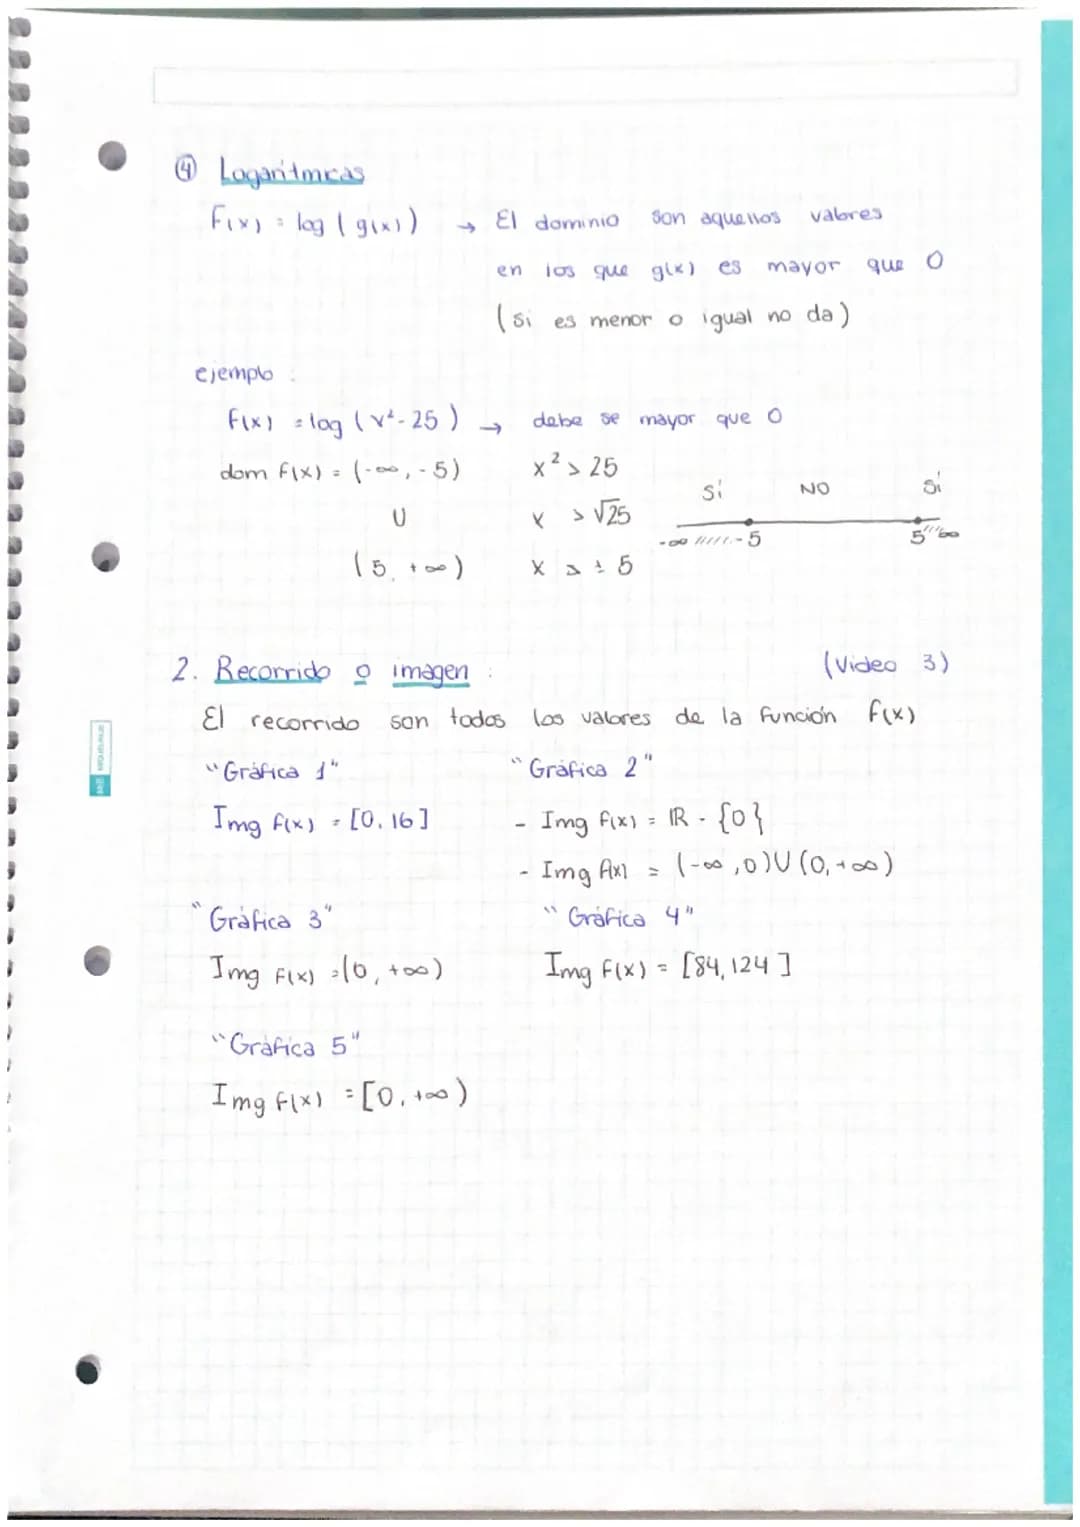 ④ Logarítmicas
F(x) = log (g(x)) → El dominio son aquellos valores
en los que g(x) es mayor que 0
(si es menor o igual no da)
ejemplo :
f(x) = log (x²-25) → debe se mayor que 0
dom f(x) = (-∞, -5) x² > 25
Sí NO Sí
U x > √25
-∞ -5 5 ∞
(5, +∞) x > ± 5
2. Recorrido o imagen : (Video 3)
El recorrido son todos los valores de la función f(x)
"Gráfica 1" "Gráfica 2"
Img f(x) = [0, 16] - Img f(x) = IR - {0}
- Img f(x) = (-∞, 0) U (0, +∞)
"Gráfica 3" "Gráfica 4"
Img f(x) = (0, +∞) Img f(x) = [84, 124]
"Gráfica 5"
Img f(x) = [0, +∞)